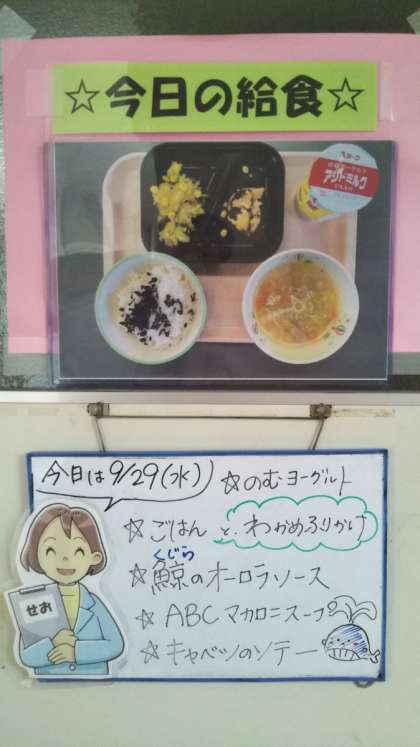 ☆今日の給食☆
アシドミルク
今日は9/29(水)
☆のむヨーグルト
☆ごはん と、わかめふりかけ
くじら
☆鯨のオーロラソース
☆ABCマカロニスープ
☆キャベツのソテー
せお